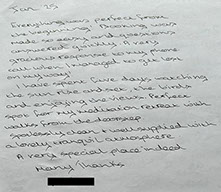 Jan. 25
Everything was perfect from
the beginning! Booking was
made so easy and questions
answered quickly. A very
gracious response to my phone
call when I managed to get lost
on my way!
I have spent five days watching
the sun rise and set, the birds
and enjoying the views. Perfect
spot for my meditation retreat with
walks on the doorstep
Spotlessly clean & well supplied with
a lovely tranquil atmosphere
A very special place indeed
Many thanks